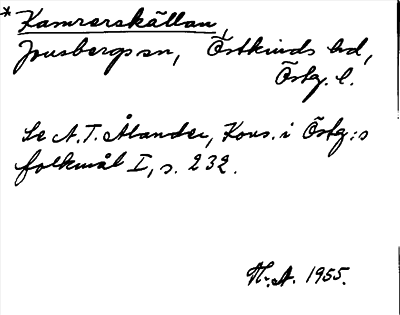 * Kamrerskällan,
Jonsbergs sn, Östkinds hd,
Östg. l.
Se N.T. Ålander, Kons. i Östg:s
folkmål I, s. 232.
N.A. 1955.